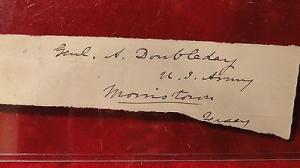 Genl. A. Doubleday
U. S. Army
Morristown
Jersey